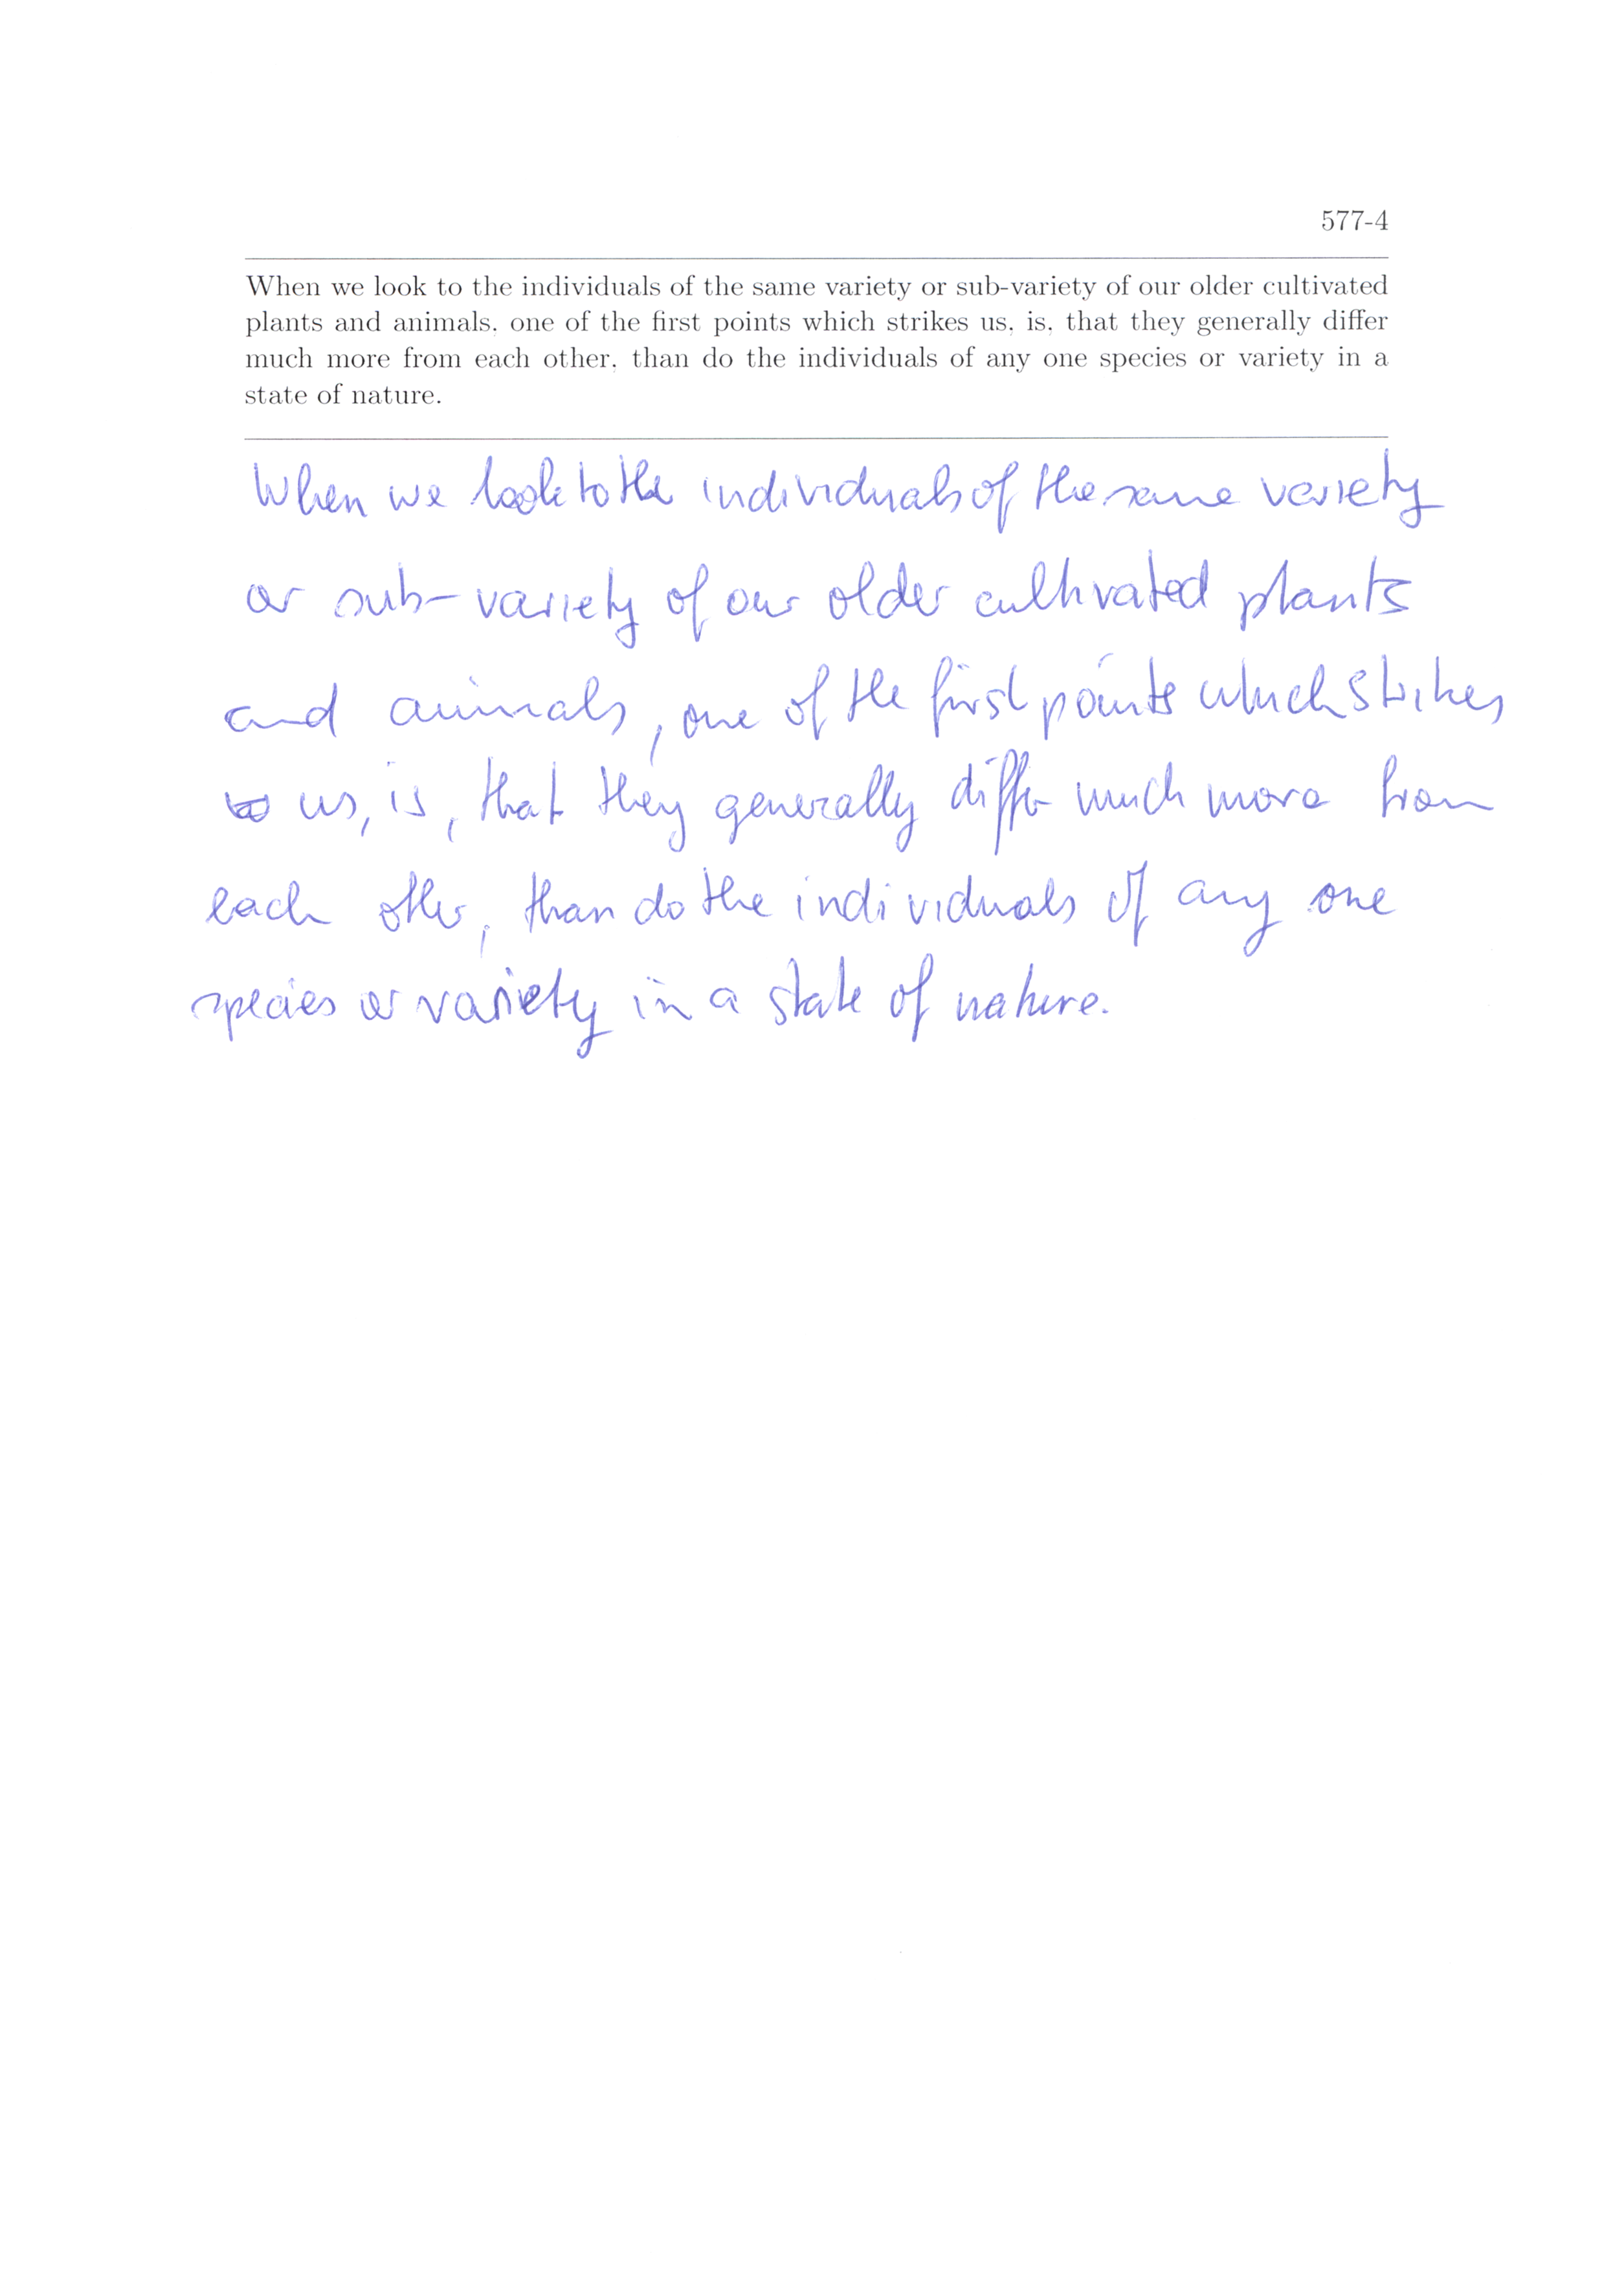 577-4
When we look to the individuals of the same variety or sub-variety of our older cultivated
plants and animals. one of the first points which strikes us. is. that they generally differ
much more from each other. than do the individuals of any one species or variety in a
state of nature.
When we look to the individuals of the same variety
or sub-variety of our older cultivated plants
and animals, one of the first points which strikes
us, is, that they generally differ much more from
each other, than do the individuals of any one
species or variety in a state of nature.